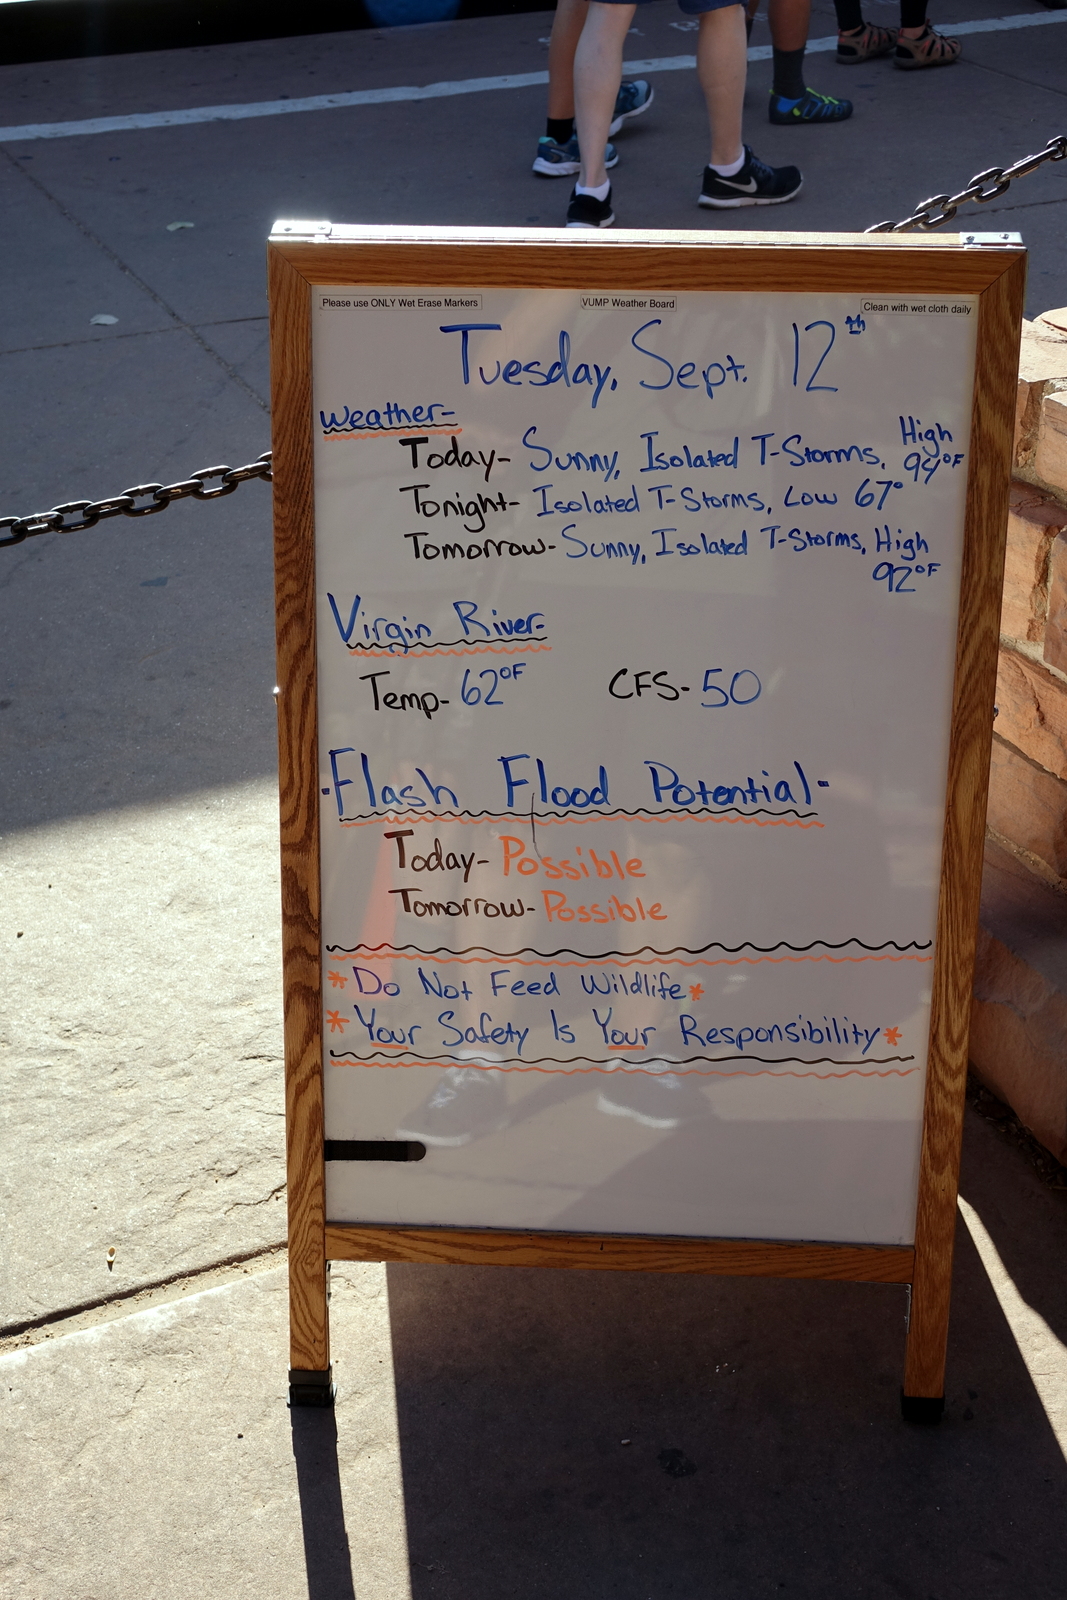 Please use ONLY Wet Erase Markers
VUMP Weather Board
Clean with wet cloth daily
Tuesday, Sept. 12th
Weather-
Today- Sunny, Isolated T-Storms, High 94°F
Tonight- Isolated T-Storms, Low 67°
Tomorrow- Sunny, Isolated T-Storms, High 92°F
Virgin River-
Temp- 62°F CFS- 50
-Flash Flood Potential-
Today- Possible
Tomorrow- Possible
*Do Not Feed Wildlife*
*Your Safety Is Your Responsibility*